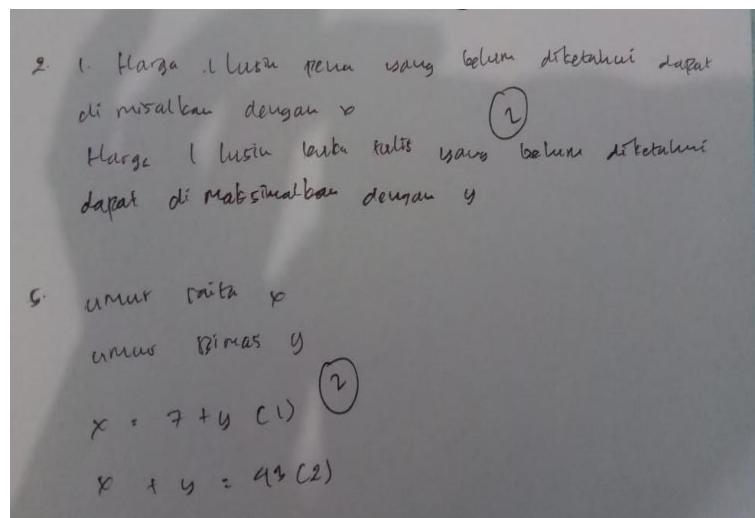 2. 1. Harga 1 lusin pena yang belum diketahui dapat
di misalkan dengan x
2
Harga 1 lusin buku tulis yang belum diketahui
dapat di maksimalkan dengan y
5. umur raita x
umur Bimas y
x = 7 + y (1)
2
x + y = 43 (2)